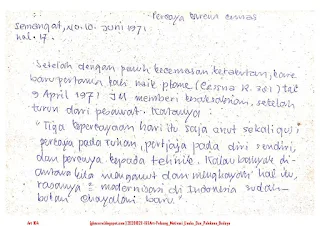 Percaya karena cemas
Semangat, no. 10. Juni 1971
hal. 17.
Setelah dengan penuh kecemasan ketakutan, kare
baru pertama kali naik plane (Cesna R. 201) tgl
9 April 1971 JM memberi kesaksian, setelah
turun dari pesawat. Katanya:
"Tiga kepercayaan hari itu saja anut sekaligus:
pertjaja pada Tuhan, pertjaja pada diri sendiri,
dan percaya kepada tehnik. Kalau banyak di-
antara kita menganut dan menghayati hal itu,
rasanya modernisasi di Indonesia sudah-
bukan lagi baru."
Art 104